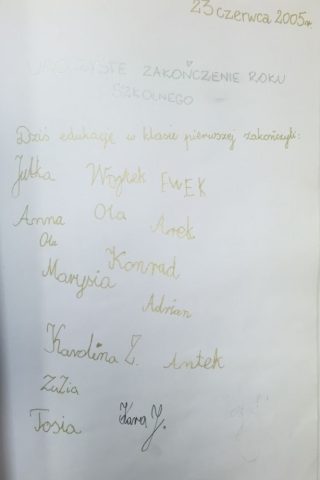 23 czerwca 2005r.
UROCZYSTE ZAKOŃCZENIE ROKU
SZKOLNEGO
Dziś edukację w klasie pierwszej zakończyli:
Julka Wojtek EWEK
Anna Ola Arek
Ola
Konrad
Marysia
Adrian
Karolina Z. Antek
ZuZia
Tosia Kara J.